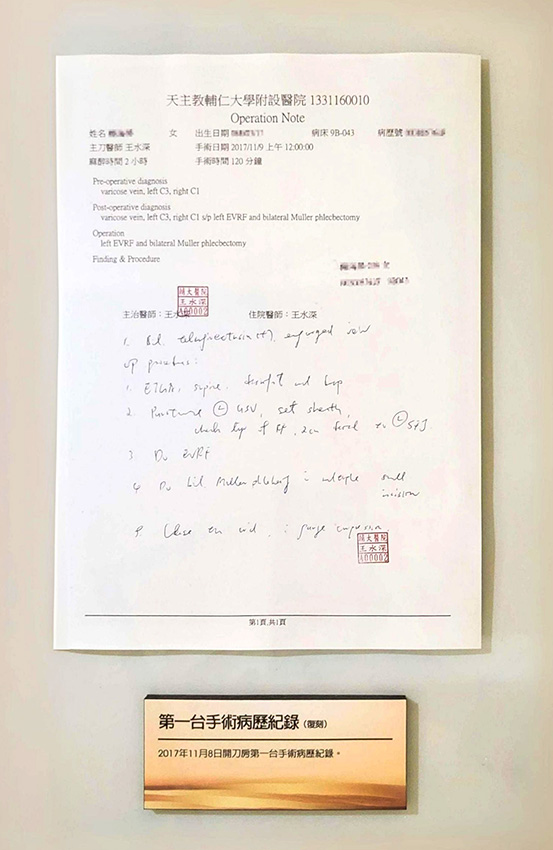 天主教輔仁大學附設醫院 1331160010
Operation Note
姓名 女 出生日期 病床 9B-043 病歷號
主刀醫師 王水深 手術日期 2017/11/9 上午 12:00:00
麻醉時間 2 小時 手術時間 120 分鐘
Pre-operative diagnosis
varicose vein, left C3, right C1
Post-operative diagnosis
varicose vein, left C3, right C1 s/p left EVRF and bilateral Muller phlecbectomy
Operation
left EVRF and bilateral Muller phlecbectomy
Finding & Procedure
輔大醫院
王水深
A00002
主治醫師：王水深 住院醫師：王水深
1. Bil. telangiectasia (+), engorged vein
op procedure:
1. ETGA, supine, disinfect and drap
2. Puncture Ⓛ GSV, set sheath,
check tip of RF, 2cm distal to Ⓛ SFJ
3. Do EVRF
4. Do bil Muller multiple small
incision
Close the
輔大醫院
王水深
A00002
第1頁,共1頁
第一台手術病歷紀錄（復刻）
2017年11月8日開刀房第一台手術病歷紀錄。